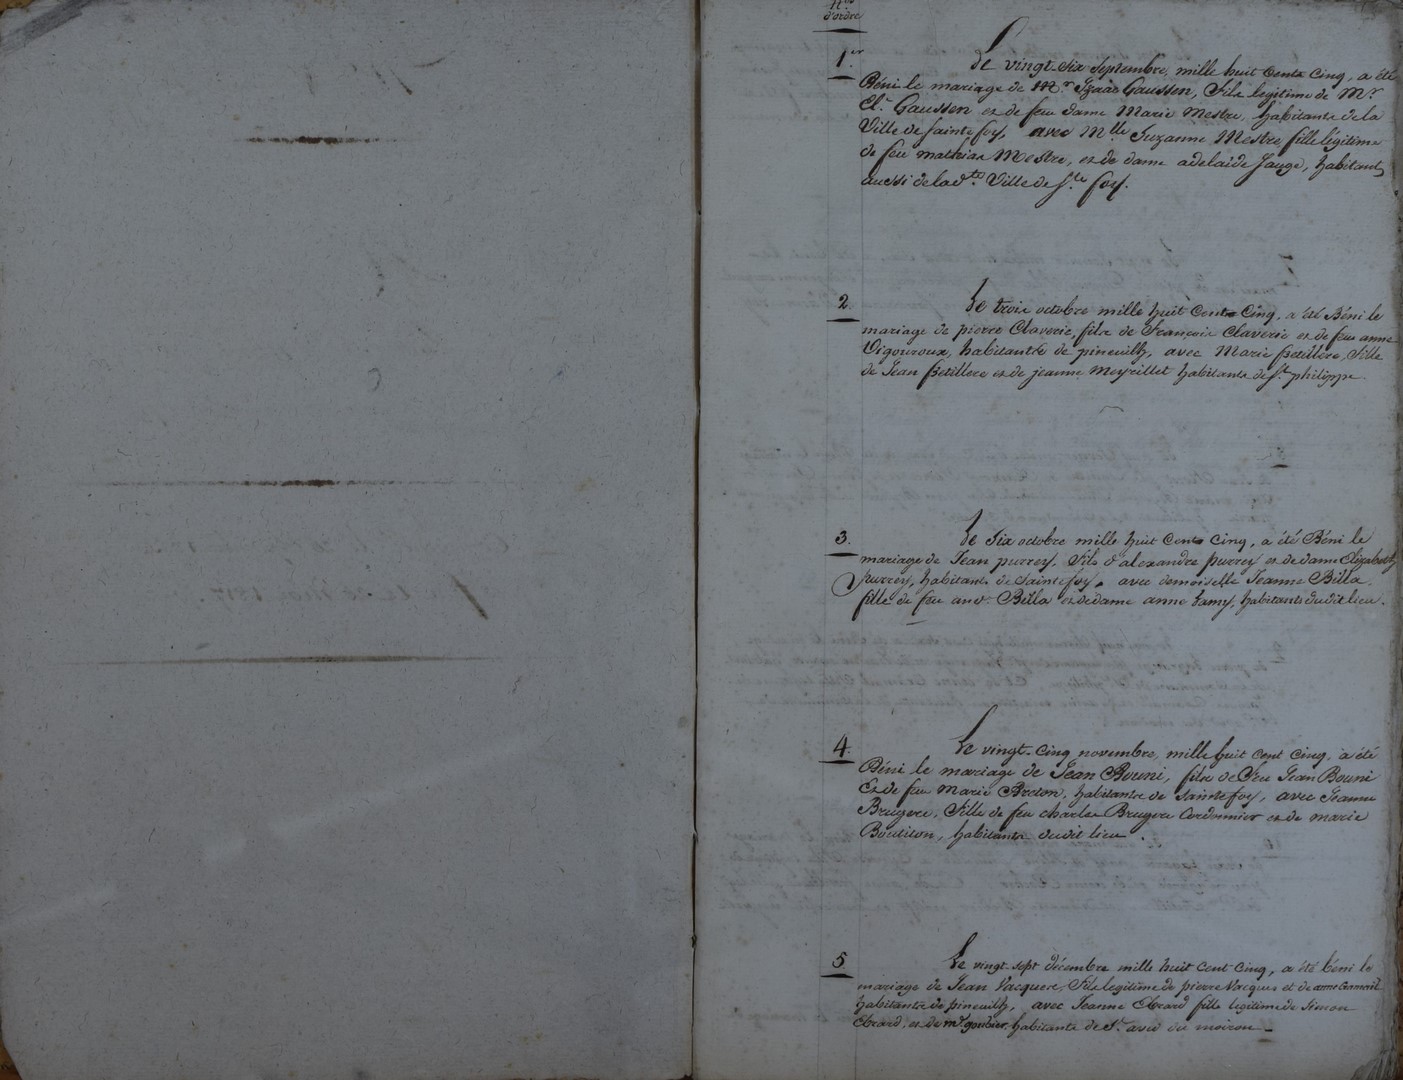 Nos
d'ordre
1er
Le vingt-Six Septembre, mille huit Cents Cinq, a été
Béni le mariage de Mr Izaac Gaussen, Fils legitime de Mr
El. Gaussen et de feu dame Marie Mestre, habitants de la
Ville de Sainte foy, avec Mlle Suzanne Mestre fille légitime
de feu mathias Mestre, et de dame adelaide Jauge, habitants
aussi de la dte Ville de Ste foy.
2.
Le trois octobre mille huit Cents Cinq, a été Béni le
mariage de pierre Claverie, fils de François Claverie et de feue anne
Vigouroux, habitants de pineuilh, avec Marie Betillere, Fille
de Jean Betillere et de jeanne Meyrillet habitants de St philippe
3.
Le Six octobre mille huit Cents Cinq, a été Béni le
mariage de Jean purrey, Fils d'alexandre purrey et de dame Elizabeth
purrey, habitants de Sainte foy, avec demoiselle Jeanne Billa
fille de feu ant. Billa et de dame anne Lamy, habitants du dit lieu.
4.
Le vingt-cinq novembre, mille huit Cent Cinq, a été
Béni le mariage de Jean Bouni, fils de Feu Jean Bouni
Et de feu Marie Breton, habitants de Sainte foy, avec Jeanne
Brugere, Fille de feu charles Brugere Cordonnier et de marie
Boutiton, habitants du dit lieu.
5
Le vingt-sept décembre mille huit Cent Cinq, a été béni le
mariage de Jean Vacquere, Fils legitime de pierre Vacques et de anne
habitants de pineuilh, avec Jeanne Ebrard fille legitime de Simon
Ebrard, et de habitants de St avit du moiron